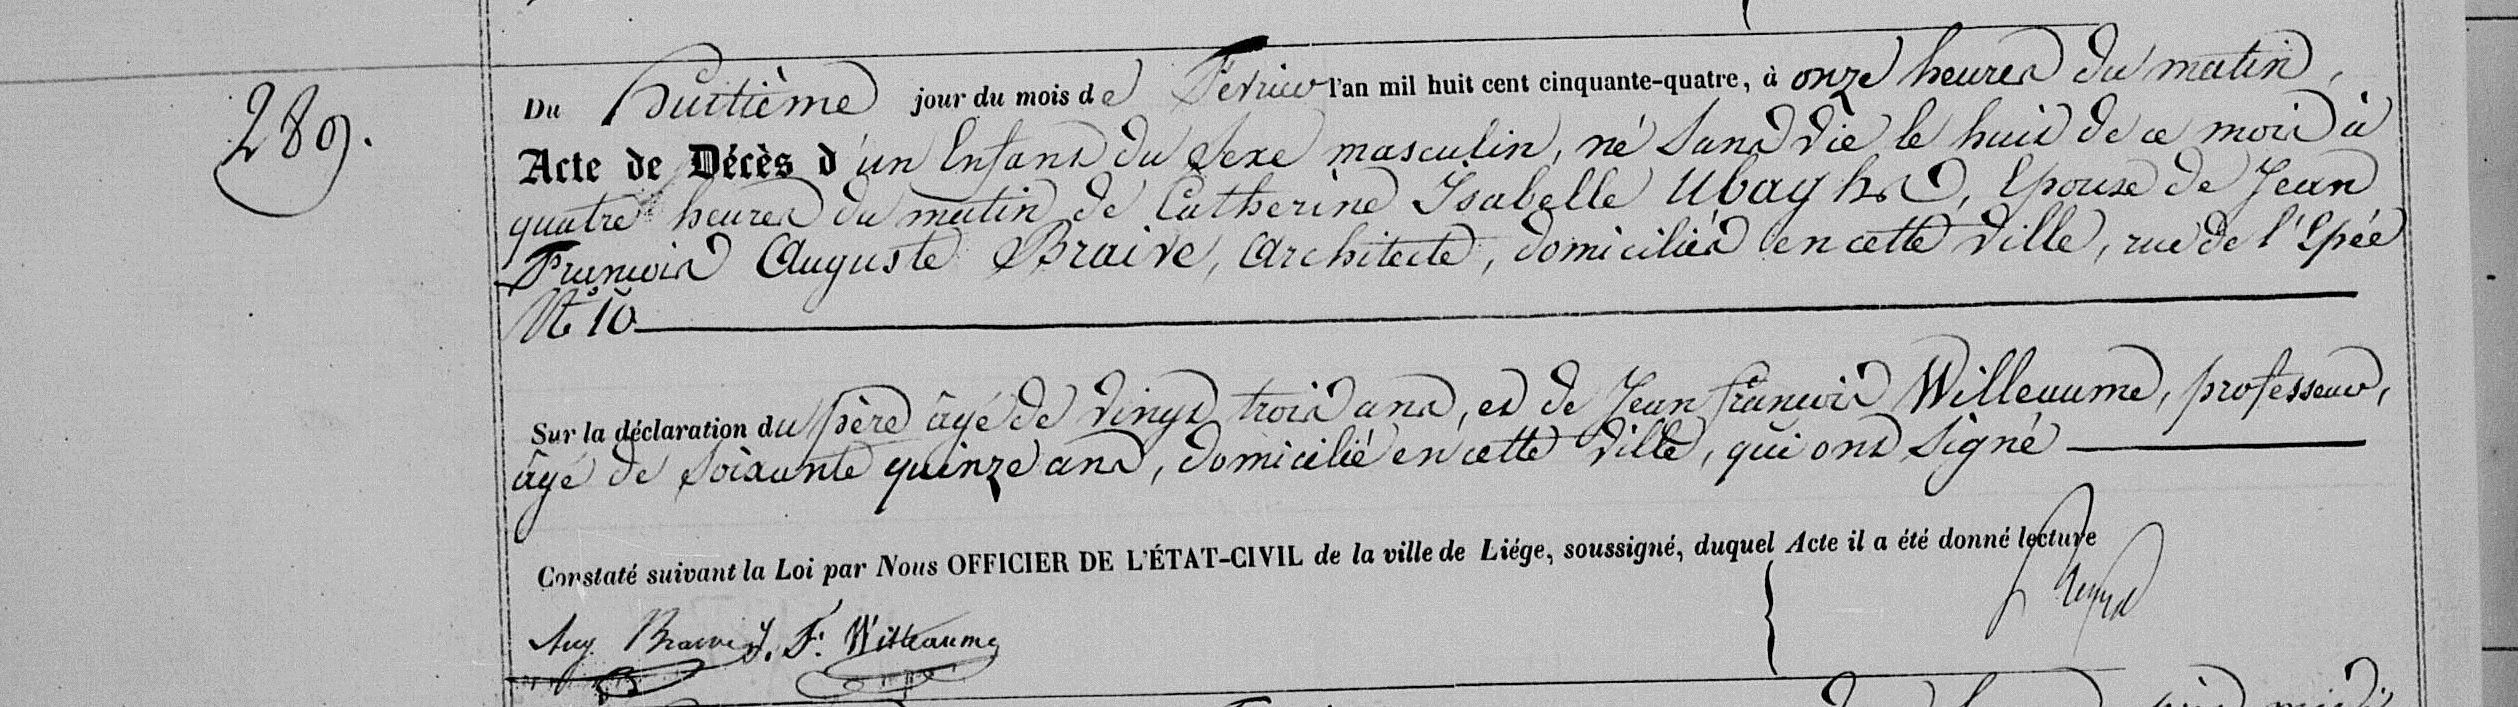 289.
Du huitième jour du mois de Fevrier l'an mil huit cent cinquante-quatre, à onze heures du matin,
Acte de Décès d'un Enfant du Sexe masculin, né Sans vie le huit de ce mois à
quatre heures du matin de Catherine Ysabelle Ubaghs, Epouse de Jean
François Auguste Braive, Architecte, domiciliés en cette ville, rue de l'Epée
No 10
Sur la déclaration du père âgé de vingt trois ans, et de Jean françois Willeaume, professeur,
âgé de Soixante quinze ans, domicilié en cette Ville, qui ont Signé
Constaté suivant la Loi par Nous OFFICIER DE L'ÉTAT-CIVIL de la ville de Liége, soussigné, duquel Acte il a été donné lecture
Aug Braive J. F. Willeaume